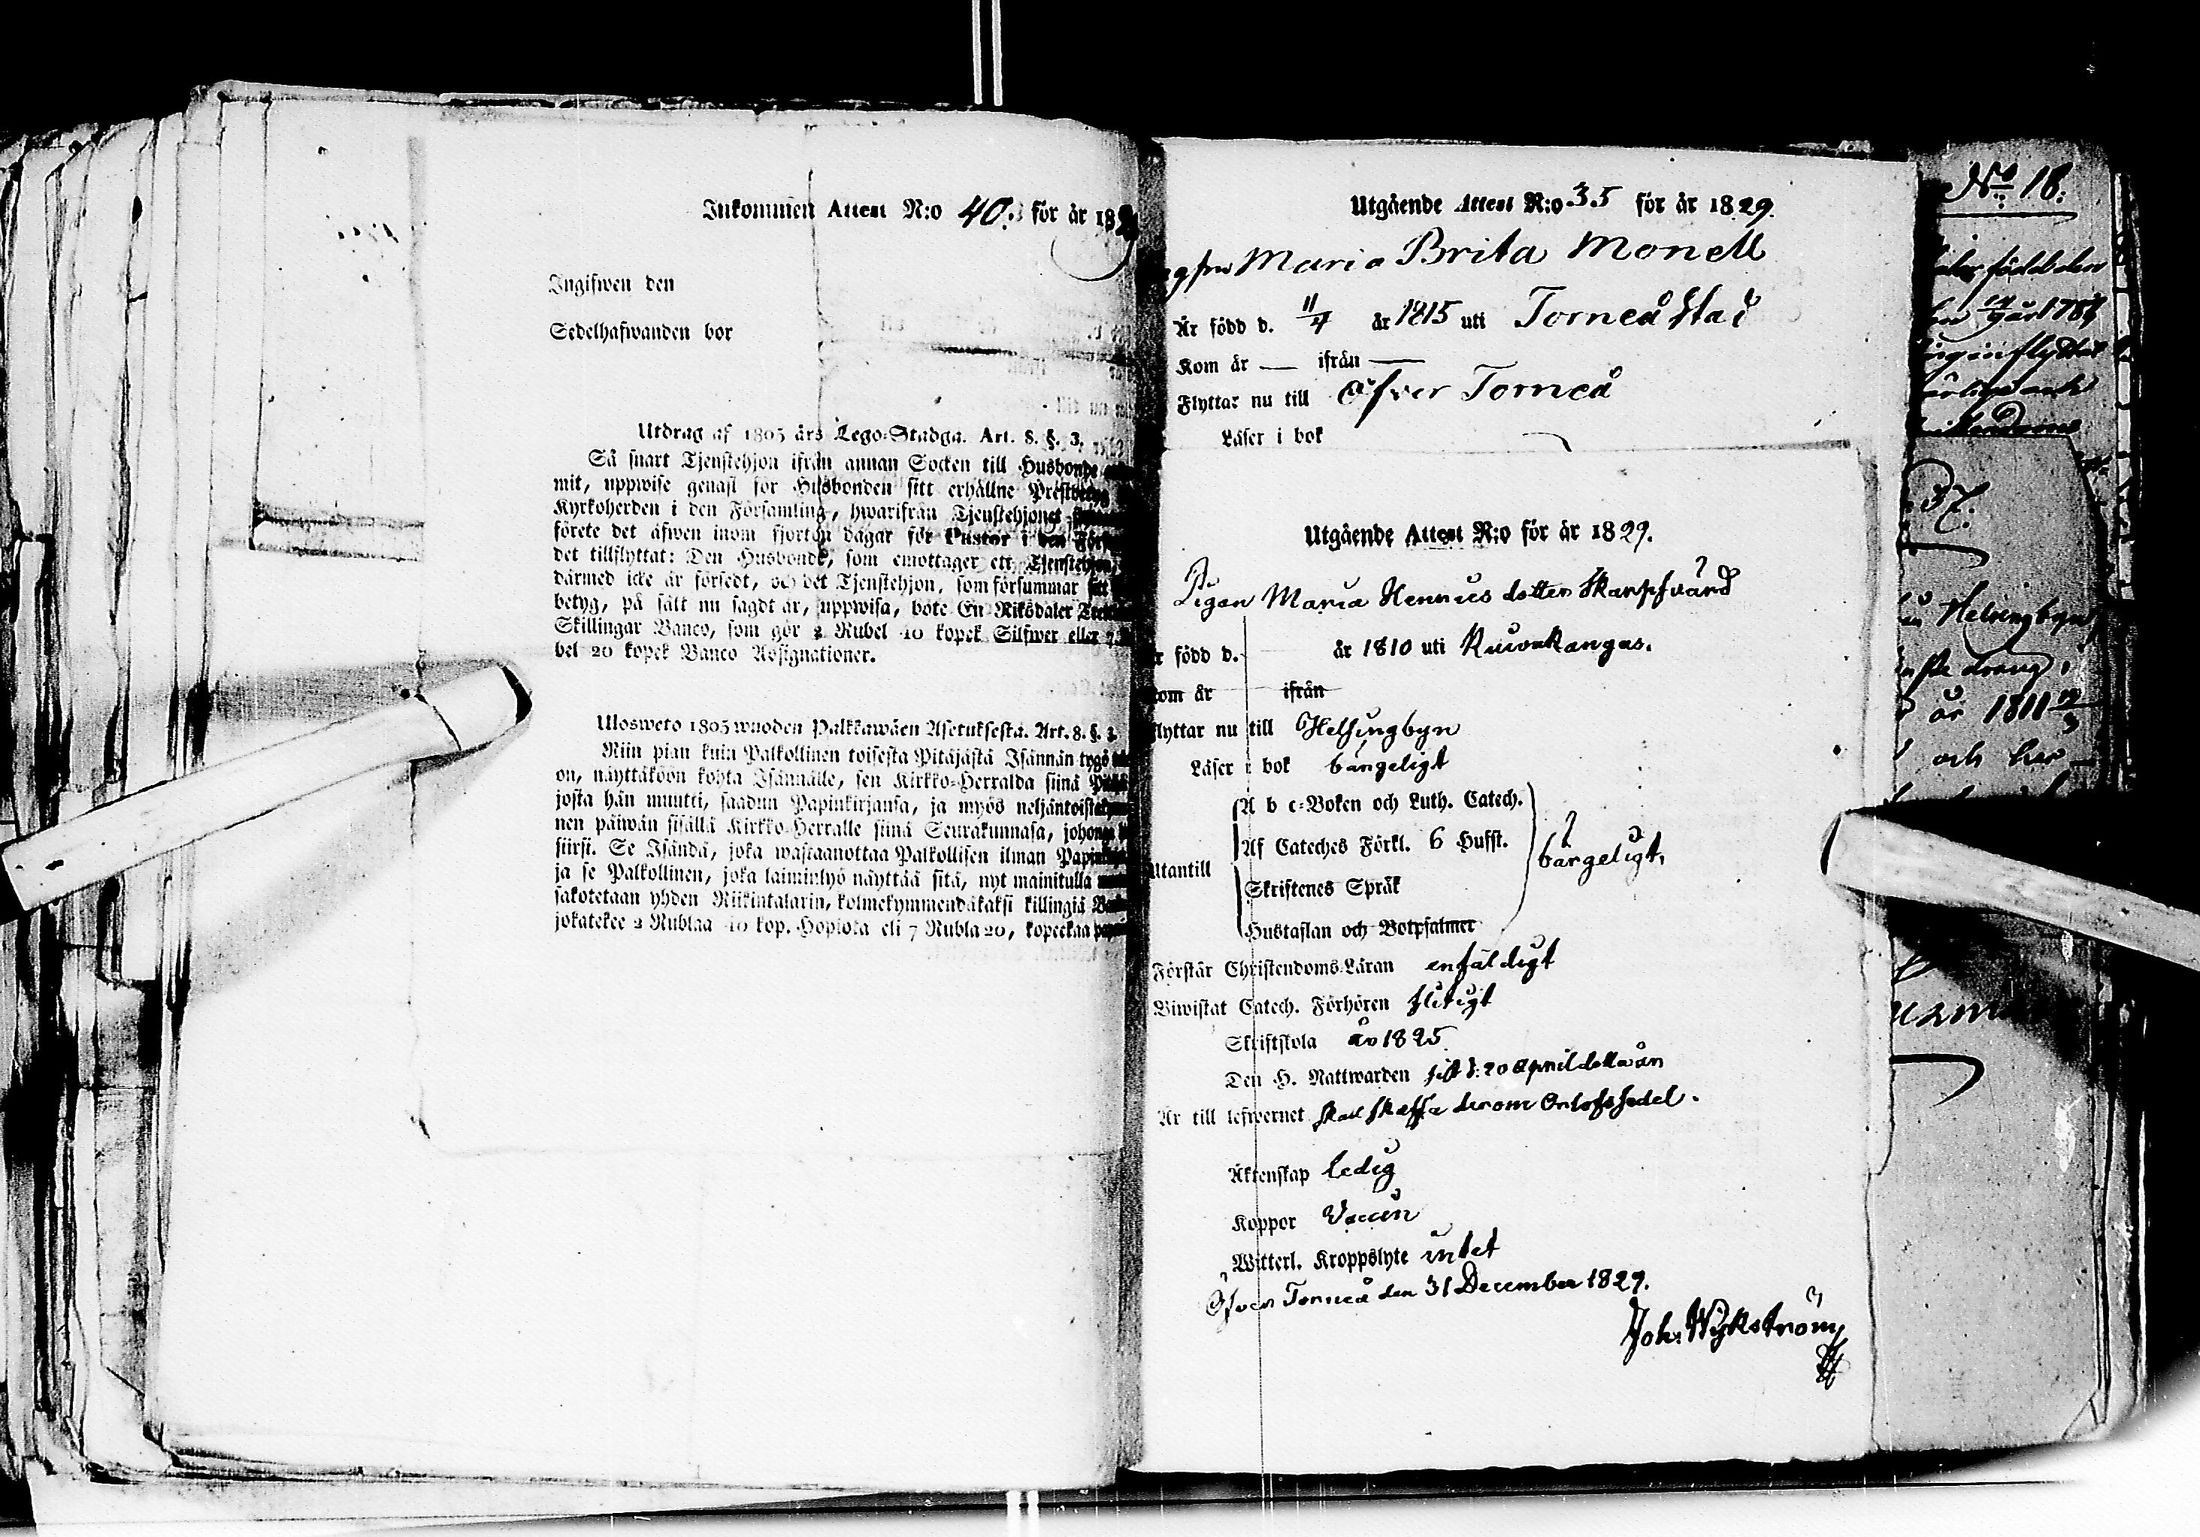 Inkommen Attest N:o 40. för år 18
Ingifwen den
Sedelhafwanden bor
Utdrag af 1805 års Lego-Stadga. Art. 8. §. 3.
Så snart Tjenstehjon ifrån annan Socken till Husbonde
mit, uppwise genast för Husbonden sitt erhållne Prestbetyg
Kyrkoherden i den Församling, hwarifrån Tjenstehjonet
förete det äfwen inom fjorton dagar för Pastor i den För
det tillflyttat: Den Husbonde, som emottager ett Tjenstehjon,
därmed icke är försedt, och det Tjenstehjon, som försummar sitt
betyg, på sätt nu sagdt är, uppwisa, böte En Riksdaler
Skillingar Banco, som gör 2 Rubel 40 kopek Silfwer eller 7
bel 20 kopek Banco Assignationer.
Ulosweto 1805 wuoden Palkkawäen Asetuksesta. Art. 8. §. 3.
Niin pian kuin Palkollinen toisesta Pitäjästä Isännän tygö
on, näyttäköön kohta Isännälle, sen Kirkko-Herralda siinä
josta hän muutti, saadun Papinkirjansa, ja myös neljäntoista
nen päiwän sisällä Kirkko-Herralle siinä Seurakunnasa, johonga
siirsi. Se Isändä, joka wastaanottaa Palkollisen ilman
ja se Palkollinen, joka laiminlyö näyttää sitä, nyt mainitulla
sakotetaan yhden Riikintalarin, kolmekymmendäkaksi killingiä
jokatekee 2 Rublaa 40 kop. Hopiota eli 7 Rubla 20, kopeekaa
Utgående Attest N:o 35 för år 1829.
Maria Brita Monell
Är född d. 11/4 år 1815 uti Torneå stad
Kom år — ifrån —
Flyttar nu till Öfver Torneå
Läser i bok
Utgående Attest N:o för år 1829.
Pigan Maria Hennies dotter Skarpfvärd
född d. år 1810 uti Kuivakangas.
kom år ifrån
flyttar nu till Helsingbyn
Läser i bok bärgeligt
A b c-Boken och Luth. Catech.
Af Cateches Förkl. 6 Hufst.
bärgeligt.
Utantill
Skriftenes Språk
Hustaflan och Botpsalmer
Förstår Christendoms-Läran enfäldigt
Biwistat Catech. Förhören flitigt
Skriftskola år 1825
Den H. Nattwarden sist d. 20 April detta år
Är till lefwernet skall skaffa derom Orlofssedel.
Äktenskap ledig
Koppor Vaccin
Witterl. Kroppslyte intet
Öfver Torneå den 31 December 1829.
Joh. Wykström
No 18.
född den
1787
inflyttat
37.
Helsingbyn
dräng
år 1811
och her